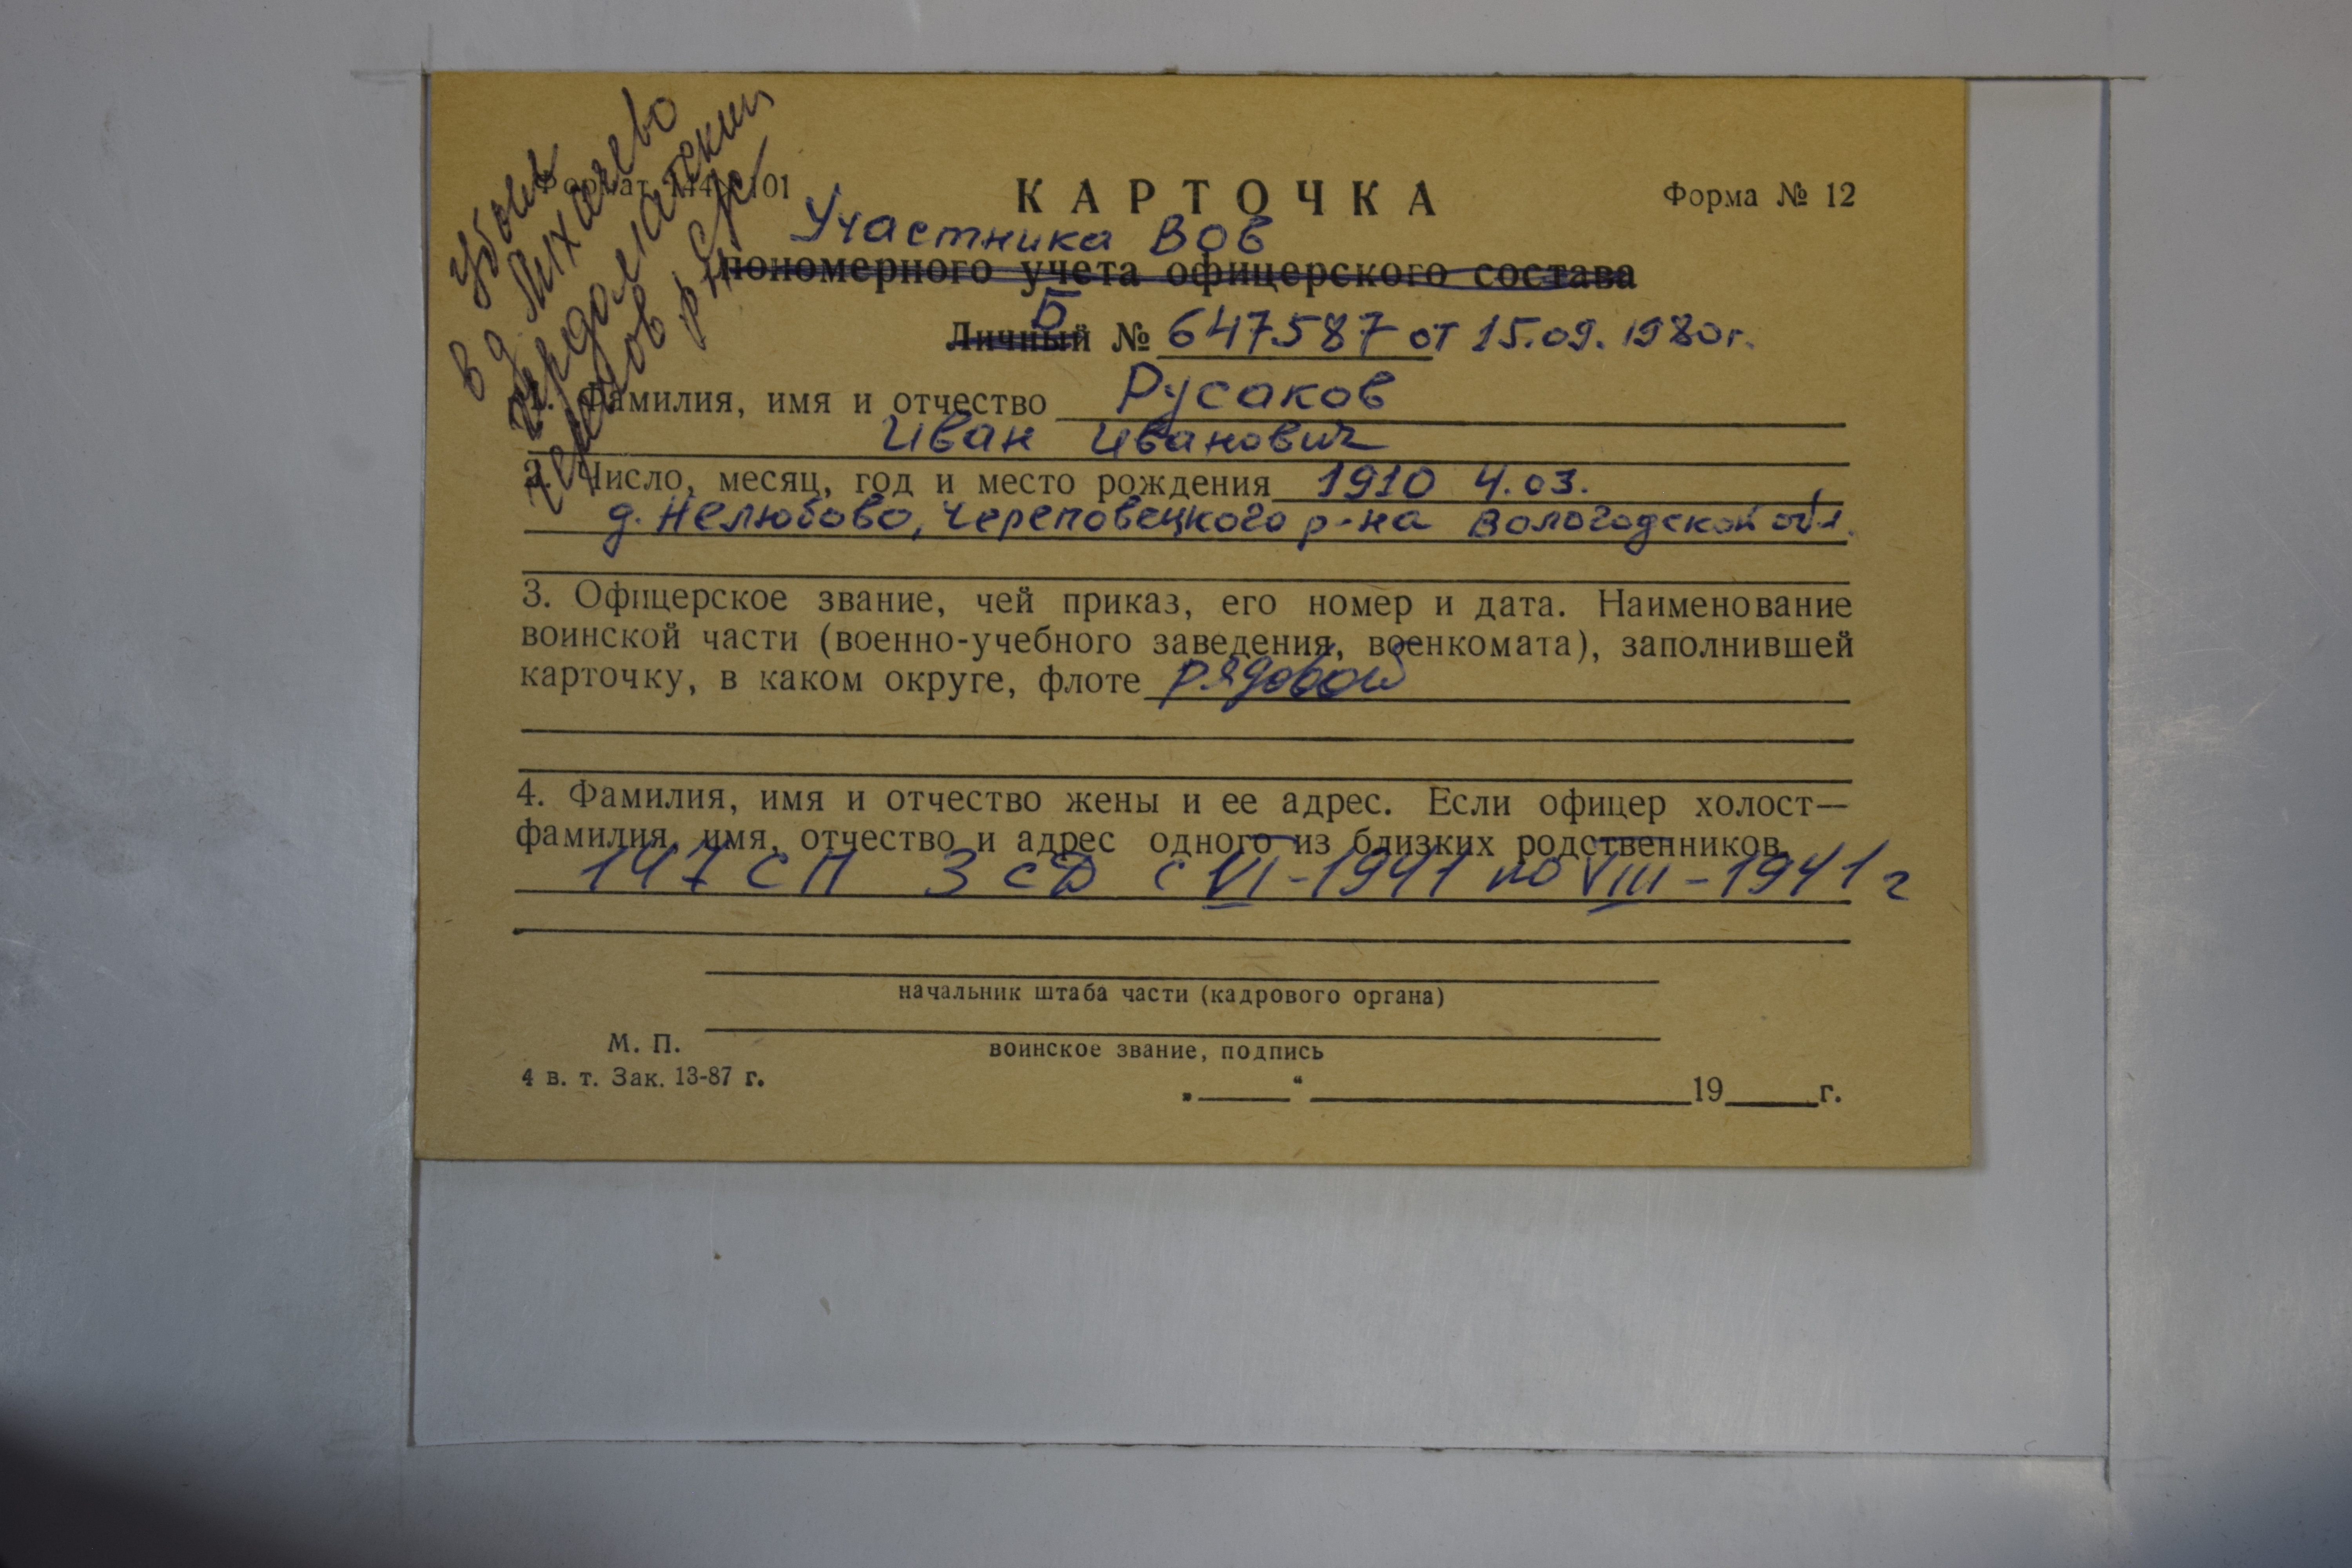 убыл
в д. Михачево
Череповецкий
р-н с/с
Формат 144×101
КАРТОЧКА
Форма № 12
Участника ВОВ
пономерного учета офицерского состава
Б
Личный № 647587 от 15.09.1980г.
1. Фамилия, имя и отчество Русаков
Иван Иванович
2. Число, месяц, год и место рождения 1910 4.03.
д. Нелюбово, Череповецкого р-на Вологодской обл.
3. Офицерское звание, чей приказ, его номер и дата. Наименование
воинской части (военно-учебного заведения, военкомата), заполнившей
карточку, в каком округе, флоте рядовой
4. Фамилия, имя и отчество жены и ее адрес. Если офицер холост—
фамилия, имя, отчество и адрес одного из близких родственников.
147 СП 3 СД с VI-1941 по VIII-1941 г
начальник штаба части (кадрового органа)
М. П.
воинское звание, подпись
4 в. т. Зак. 13-87 г.
„ “ 19 г.